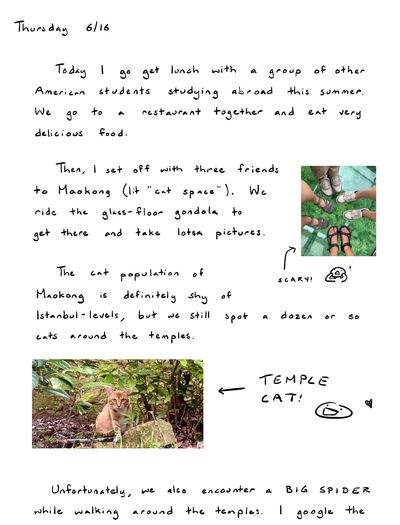 Thursday 6/16
Today I go get lunch with a group of other
American students studying abroad this summer.
We go to a restaurant together and eat very
delicious food.
Then, I set off with three friends
to Maokong (lit "cat space"). We
ride the glass-floor gondola to
get there and take lotsa pictures.
SCARY!
The cat population of
Maokong is definitely shy of
Istanbul-levels, but we still spot a dozen or so
cats around the temples.
TEMPLE
CAT!
Unfortunately, we also encounter a BIG SPIDER
while walking around the temples. I google the